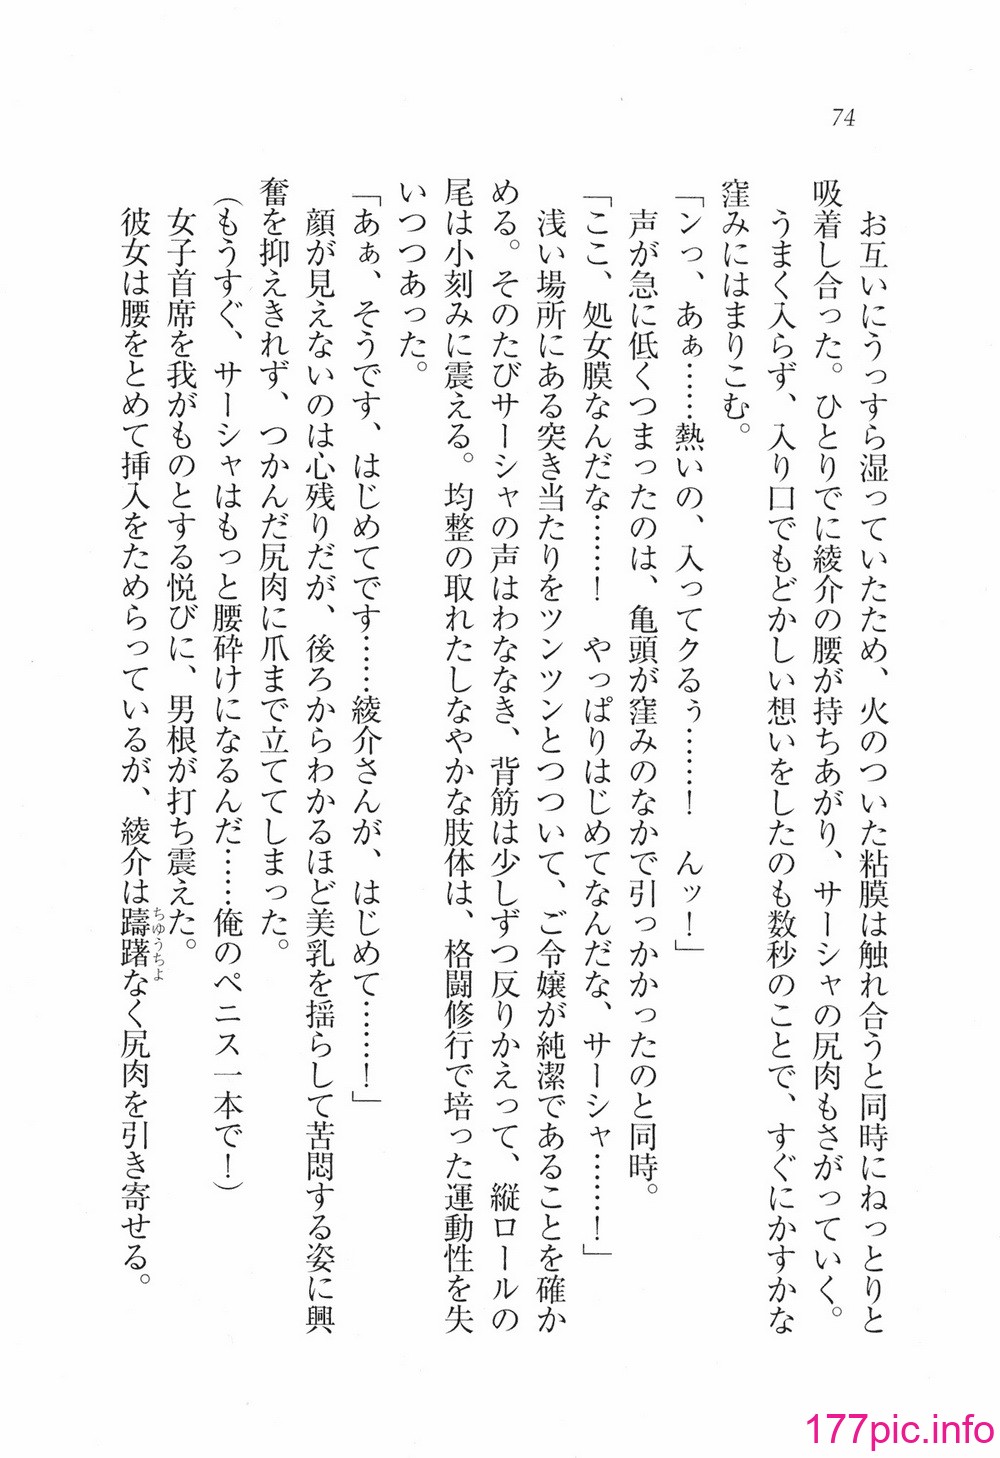 74
お互いにうっすら湿っていたため、火のついた粘膜は触れ合うと同時にねっとりと
吸着し合った。ひとりでに綾介の腰が持ちあがり、サーシャの尻肉もさがっていく。
うまく入らず、入り口でもどかしい想いをしたのも数秒のことで、すぐにかすかな
窪みにはまりこむ。
「ンっ、あぁ……熱いの、入ってクるぅ……！　んッ！」
声が急に低くつまったのは、亀頭が窪みのなかで引っかかったのと同時。
「ここ、処女膜なんだな……！　やっぱりはじめてなんだな、サーシャ……！」
浅い場所にある突き当たりをツンツンとつついて、ご令嬢が純潔であることを確か
める。そのたびサーシャの声はわななき、背筋は少しずつ反りかえって、縦ロールの
尾は小刻みに震える。均整の取れたしなやかな肢体は、格闘修行で培った運動性を失
いつつあった。
「あぁ、そうです、はじめてです……綾介さんが、はじめて……！」
顔が見えないのは心残りだが、後ろからわかるほど美乳を揺らして苦悶する姿に興
奮を抑えきれず、つかんだ尻肉に爪まで立ててしまった。
（もうすぐ、サーシャはもっと腰砕けになるんだ……俺のペニス一本で！）
女子首席を我がものとする悦びに、男根が打ち震えた。
彼女は腰をとめて挿入をためらっているが、綾介は躊躇なく尻肉を引き寄せる。
ちゅうちょ
177pic.info